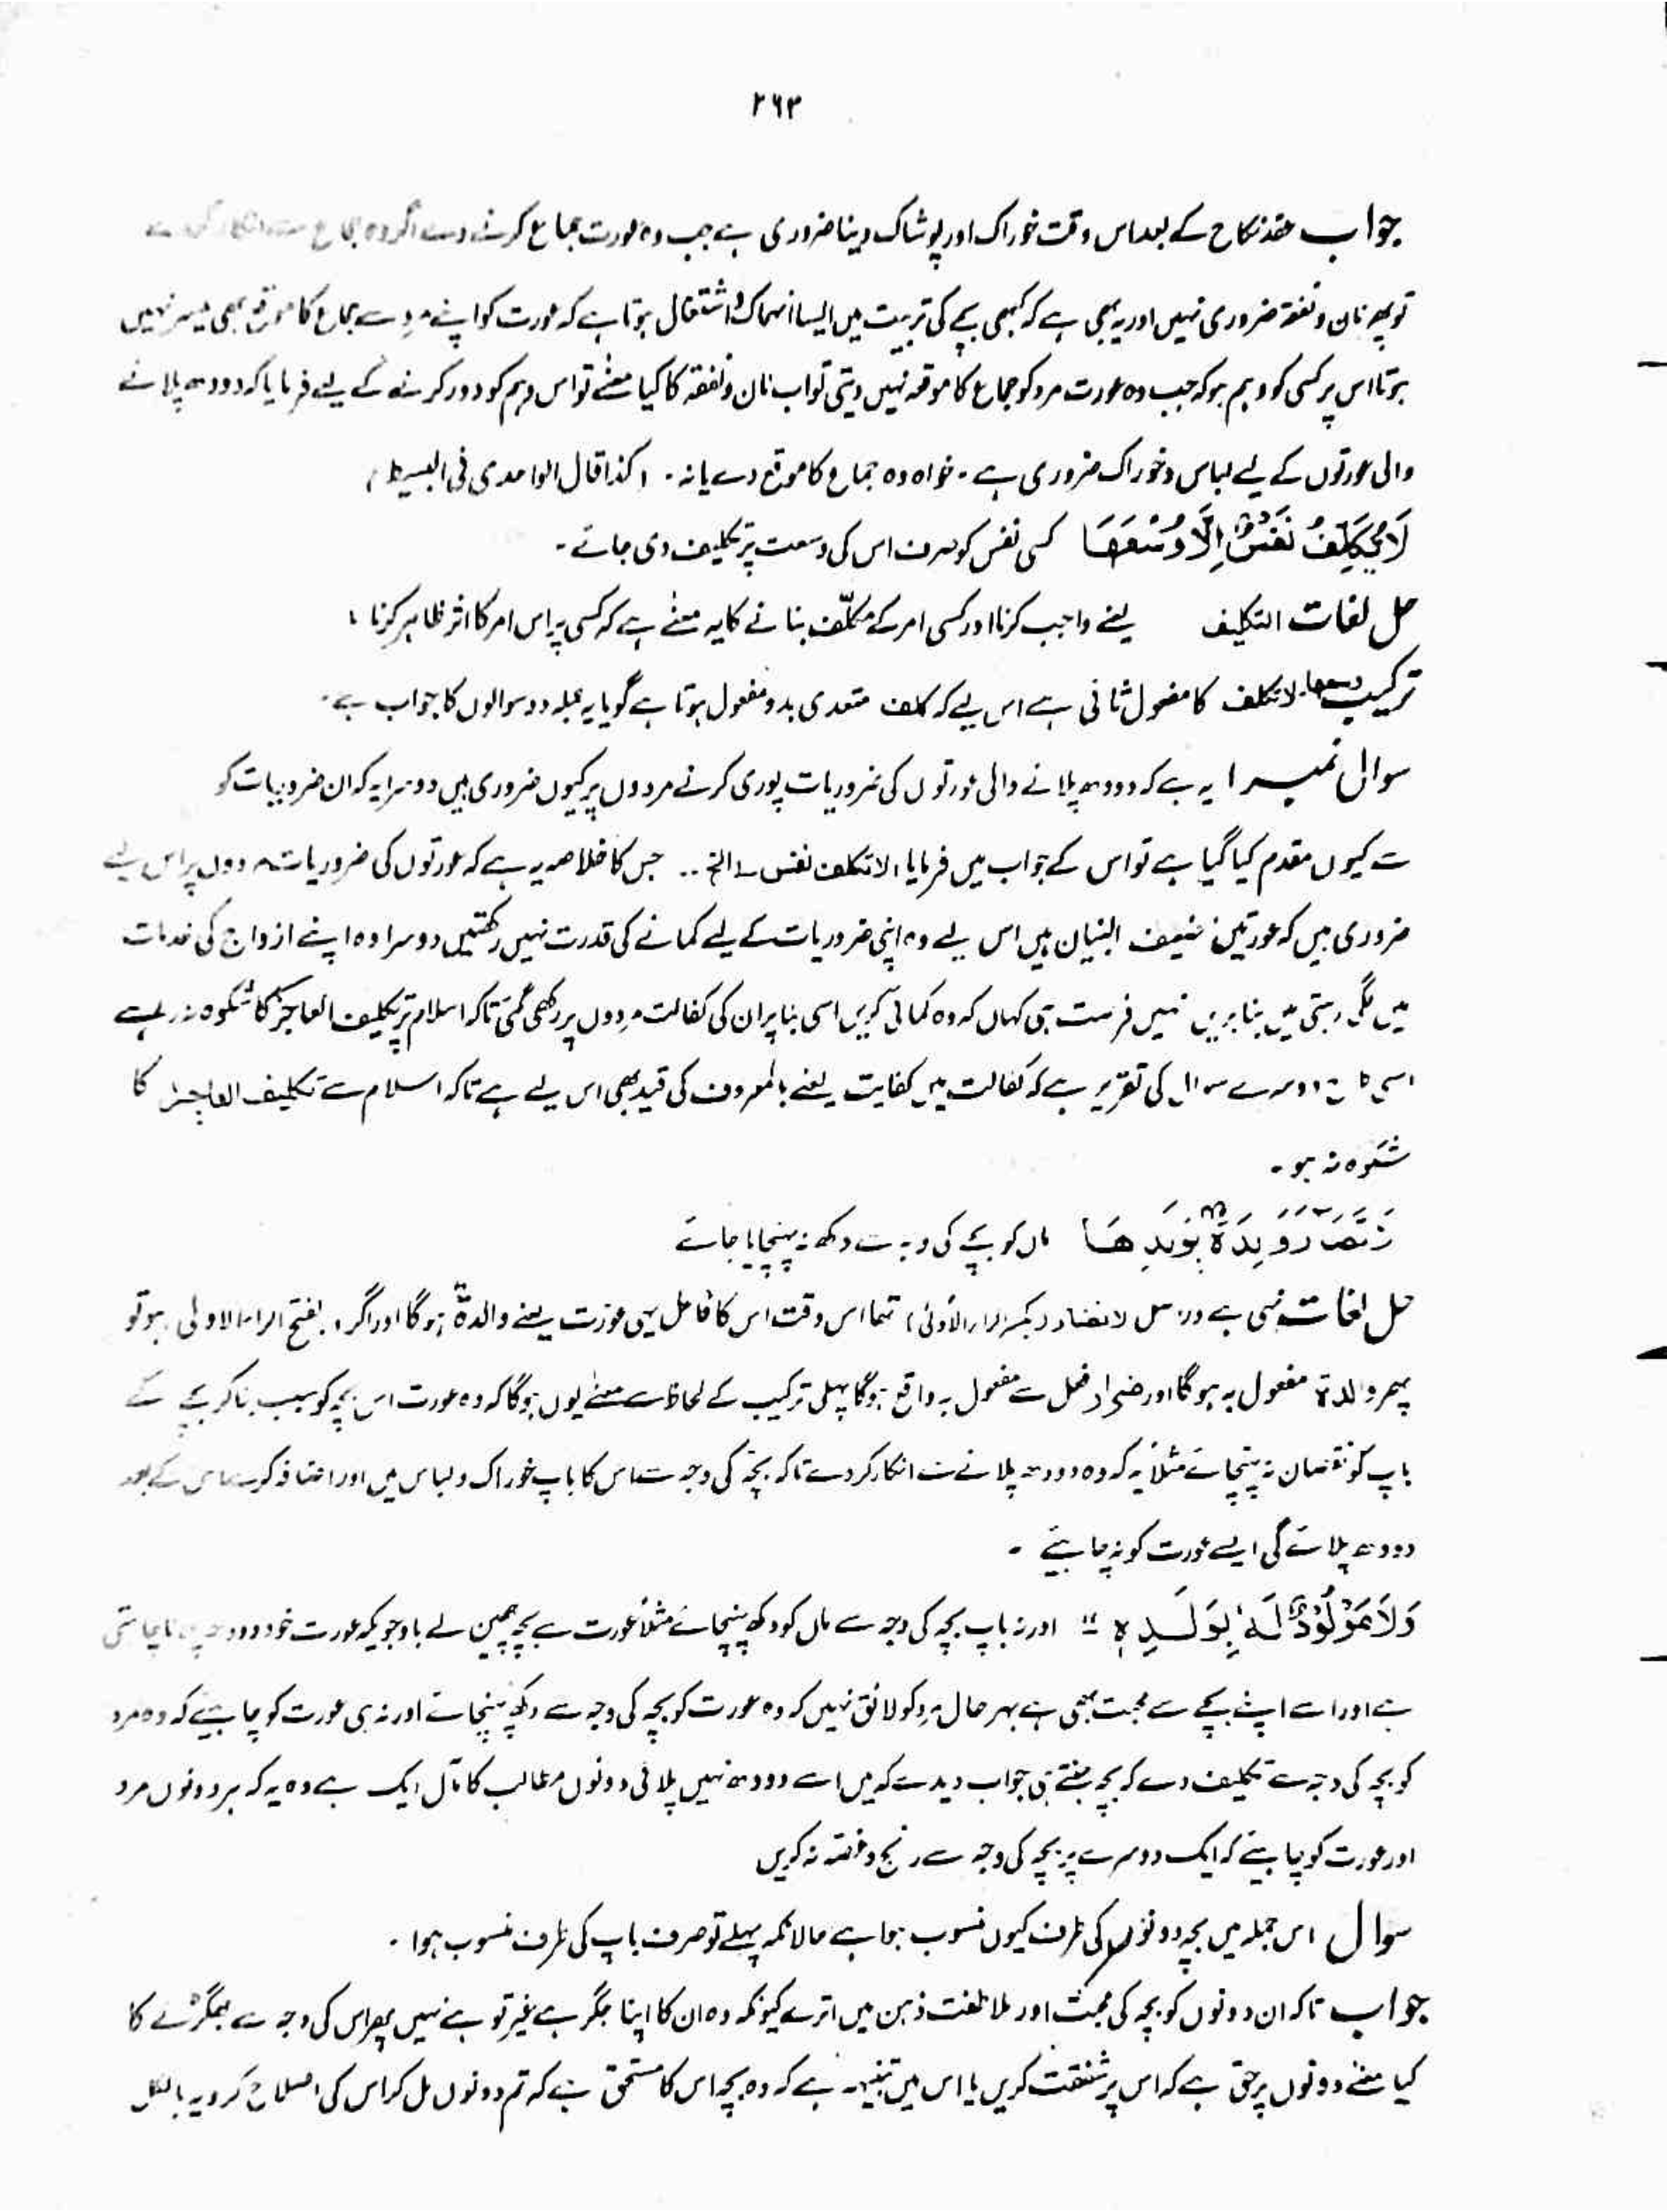 ۲۶۳
جواب عقد نکاح کے بعد اس وقت خوراک اور پوشاک دینا ضروری ہے جب وہ عورت جماع کرنے دے اگر وہ جماع سے انکار کرے
تو پھر نان و نفقہ ضروری نہیں اور یہ بھی ہے کہ کبھی بچے کی تربیت میں ایسا انہماک و اشتغال ہوتا ہے کہ عورت کو اپنے مرد سے جماع کا موقع بھی میسر نہیں
ہوتا اس پر کسی کو وہم ہو کہ جب وہ عورت مرد کو جماع کا موقعہ نہیں دیتی تو اب نان و نفقہ کا کیا معنےٰ تو اس وہم کو دور کرنے کے لیے فرمایا کہ دودھ پلانے
والی عورتوں کے لیے لباس و خوراک ضروری ہے۔ خواہ وہ جماع کا موقع دے یا نہ۔ (کذا قال الواحدی فی البسیط)
لَا تُكَلَّفُ نَفْسٌ اِلَّا وُسْعَهَا کسی نفس کو صرف اس کی وسعت پر تکلیف دی جائے۔
حل لغات التکلیف یعنے واجب کرنا اور کسی امر کے مکلّف بنانے کا یہ معنےٰ ہے کہ کسی پر اس امر کا اثر ظاہر کرنا،
ترکیب وسعھا۔ لا تکلف کا مفعول ثانی ہے اس لیے کہ کلف متعدی بدو مفعول ہوتا ہے گویا یہ جملہ دو سوالوں کا جواب ہے۔
سوال نمبر ا یہ ہے کہ دودھ پلانے والی عورتوں کی ضروریات پوری کرنے مردوں پر کیوں ضروری ہیں دوسرا یہ کہ ان ضروریات کو
سے کیوں مقدم کیا گیا ہے تو اس کے جواب میں فرمایا، لا تکلف نفس الخ .. جس کا خلاصہ یہ ہے کہ عورتوں کی ضروریات مردوں پر اس لیے
ضروری ہیں کہ عورتیں ضعیف البنیان ہیں اس لیے وہ اپنی ضروریات کے لیے کمانے کی قدرت نہیں رکھتیں دوسرا وہ اپنے ازواج کی خدمات
میں لگی رہتی ہیں بنا بریں نہیں فرصت ہی کہاں کہ وہ کمائی کریں اسی بنا پر ان کی کفالت مردوں پر رکھی گئی تاکہ اسلام پر تکلیف العاجز کا شکوہ نہ رہے
اسی دوسرے سوال کی تقریر ہے کہ کفالت میں کفایت یعنے بالمعروف کی قید بھی اس لیے ہے تاکہ اسلام سے تکلیف العاجز کا
شکوہ نہ ہو۔
وَالِدَةٌۢ بِوَلَدِهَا ماں کو بچے کی وجہ سے دکھ نہ پہنچایا جائے
حل لغات نہی ہے دراصل لا تضارر (بکسر الراء الاولیٰ) تھا اس وقت اس کا فاعل یہی عورت یعنے والدۃ ہوگا اور اگر، بفتح الراء الاولی، ہو تو
پھر والدۃ مفعول بہ ہوگا اور ضرار فعل سے مفعول بہ واقع ہوگا پہلی ترکیب کے لحاظ سے معنےٰ یوں ہوگا کہ وہ عورت اس بچہ کو سبب بنا کر بچے کے
باپ کو نقصان نہ پہنچائے مثلاً یہ کہ وہ دودھ پلانے سے انکار کر دے تاکہ بچہ کی وجہ سے اس کا باپ خوراک و لباس میں اور اضافہ کرے اس کے بعد
دودھ پلائے گی ایسے عورت کو نہ چاہیئے۔
وَلَا مَوْلُوْدٌ لَّهٗ بِوَلَدِهٖ اور نہ باپ بچہ کی وجہ سے ماں کو دکھ پہنچائے مثلاً عورت سے بچہ چھین لے باوجودیکہ عورت خود دودھ پلانا چاہتی
ہے اور اسے اپنے بچے سے محبت بھی ہے بہر حال مرد کو لائق نہیں کہ وہ عورت کو بچہ کی وجہ سے دکھ پہنچائے اور نہ ہی عورت کو چاہیئے کہ وہ مرد
کو بچہ کی وجہ سے تکلیف دے کہ بچہ جنتے ہی جواب دیدے کہ میں اسے دودھ نہیں پلاتی دونوں مطالب کا مآل ایک ہے وہ یہ کہ ہر دونوں مرد
اور عورت کو چاہیئے کہ ایک دوسرے پر بچہ کی وجہ سے رنج و غصہ نہ کریں
سوال اس جملہ میں بچہ دونوں کی طرف کیوں منسوب ہوا ہے حالانکہ پہلے تو صرف باپ کی طرف منسوب ہوا۔
جواب تاکہ ان دونوں کو بچہ کی محبت اور ملاطفت ذہن میں اترے کیونکہ وہ ان کا اپنا جگر ہے غیر تو ہے نہیں پھر اس کی وجہ سے جھگڑے کا
کیا معنے دونوں پر حق ہے کہ اس پر شفقت کریں یا اس میں تنبیہ ہے کہ وہ بچہ اس کا مستحق ہے کہ تم دونوں مل کر اس کی اصلاح کرو یہ بالکل